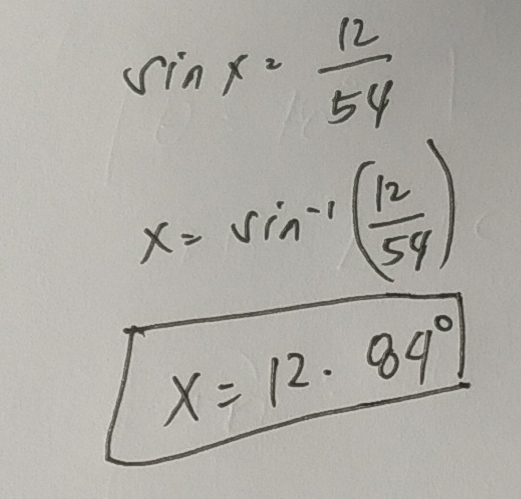 sin x = 12/54
x = sin⁻¹(12/54)
x = 12.84°